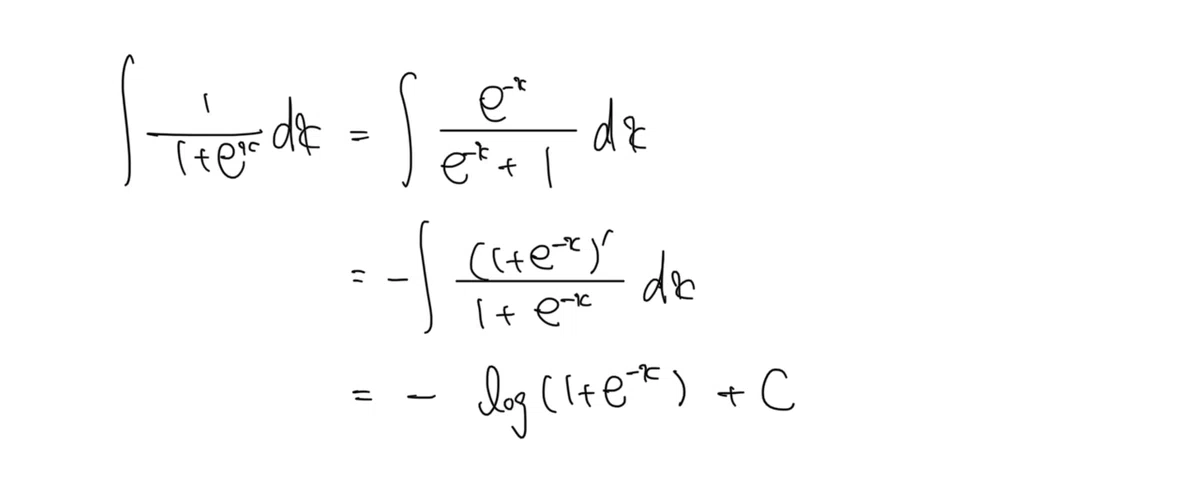 ∫ 1/(1+e^x) dx = ∫ e^{-x}/(e^{-x}+1) dx
= -∫ (1+e^{-x})'/(1+e^{-x}) dx
= - log(1+e^{-x}) + C